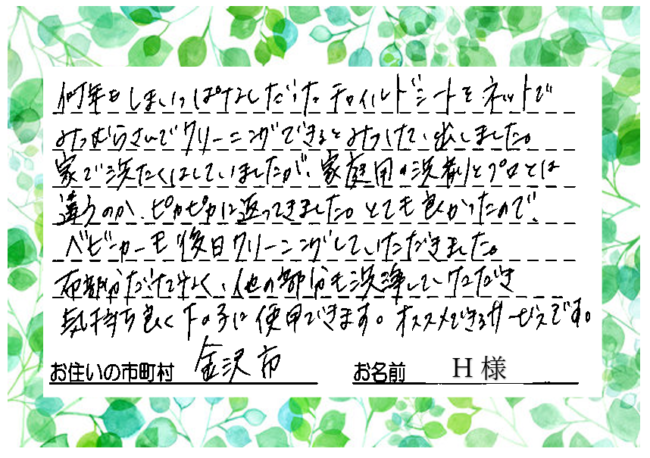 何年もしまいっぱなしだったチャイルドシートをネットで
みつむらさんでクリーニングできるとみつけて、出しました。
家で洗たくはしていましたが、家庭用の洗剤とプロとは
違うのか、ピカピカに返ってきました。とても良かったので、
ベビーカーも後日クリーニングしていただきました。
布部分だけでなく、他の部分も洗浄していただき
気持ち良く下の子に使用できます。オススメできるサービスです。
お住いの市町村 金沢市 お名前 H 様